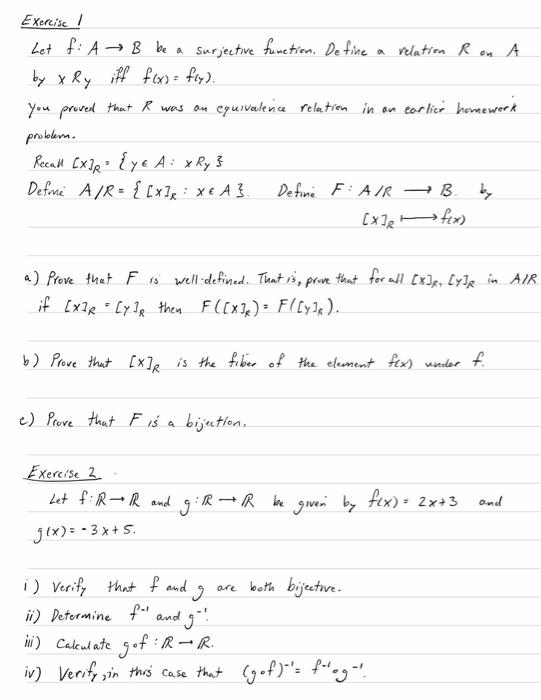 Exercise 1
Let f: A → B be a surjective function. Define a relation R on A
by x R y iff f(x) = f(y).
You proved that R was an equivalence relation in an earlier homework
problem.
Recall [x]_R = { y ∈ A : x R y }
Define A/R = { [x]_R : x ∈ A }. Define F: A/R → B. by
[x]_R ↦ f(x)
a) Prove that F is well-defined. That is, prove that for all [x]_R, [y]_R in A/R
if [x]_R = [y]_R then F([x]_R) = F([y]_R).
b) Prove that [x]_R is the fiber of the element f(x) under f.
c) Prove that F is a bijection.
Exercise 2
Let f: ℝ → ℝ and g: ℝ → ℝ be given by f(x) = 2x+3 and
g(x) = -3x+5.
i) Verify that f and g are both bijective.
ii) Determine f⁻¹ and g⁻¹.
iii) Calculate g∘f : ℝ → ℝ.
iv) Verify, in this case that (g∘f)⁻¹ = f⁻¹∘g⁻¹.